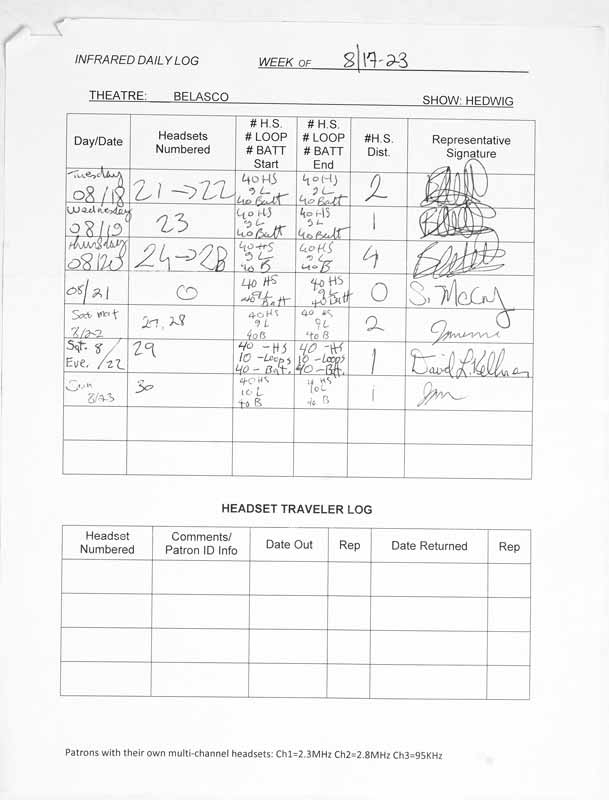 INFRARED DAILY LOG WEEK OF 8/17-23
THEATRE: BELASCO SHOW: HEDWIG
Day/Date Headsets Numbered # H.S. # LOOP # BATT Start # H.S. # LOOP # BATT End #H.S. Dist. Representative Signature
Tuesday 08/18 21→22 40HS 9L 40Batt 40HS 9L 40Batt 2
Wednesday 08/19 23 40HS 9L 40Batt 40HS 9L 40Batt 1
Thursday 08/20 24→2B 40HS 9L 40B 40HS 9L 40B 4
08/21 0 40 HS 9L Batt 40HS 9L 40Batt 0 S. McCoy
Sat mat 8/22 27, 28 40HS 9L 40B 40 HS 9L 40B 2
Sat. 8/22 Eve. 29 40 -HS 10 -Loops 40 - Bat. 40 -HS 10 -Loops 40 - Bt. 1 David L. Kellman
Sun 8/23 30 40HS 10L 40B 40HS 9L 40 B 1
HEADSET TRAVELER LOG
Headset Numbered Comments/ Patron ID Info Date Out Rep Date Returned Rep
Patrons with their own multi-channel headsets: Ch1=2.3MHz Ch2=2.8MHz Ch3=95KHz